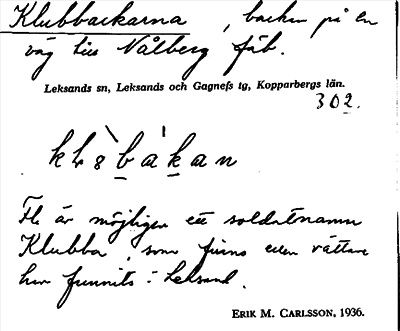 Klubbackarna, backen på en
väg till Nålberg fäb.
Leksands sn, Leksands och Gagnefs tg, Kopparbergs län.
302.
Fl. är möjligen ett soldatnamn
Klubba, som finns eller rättare
har funnits i Leksand.
ERIK M. CARLSSON, 1936.